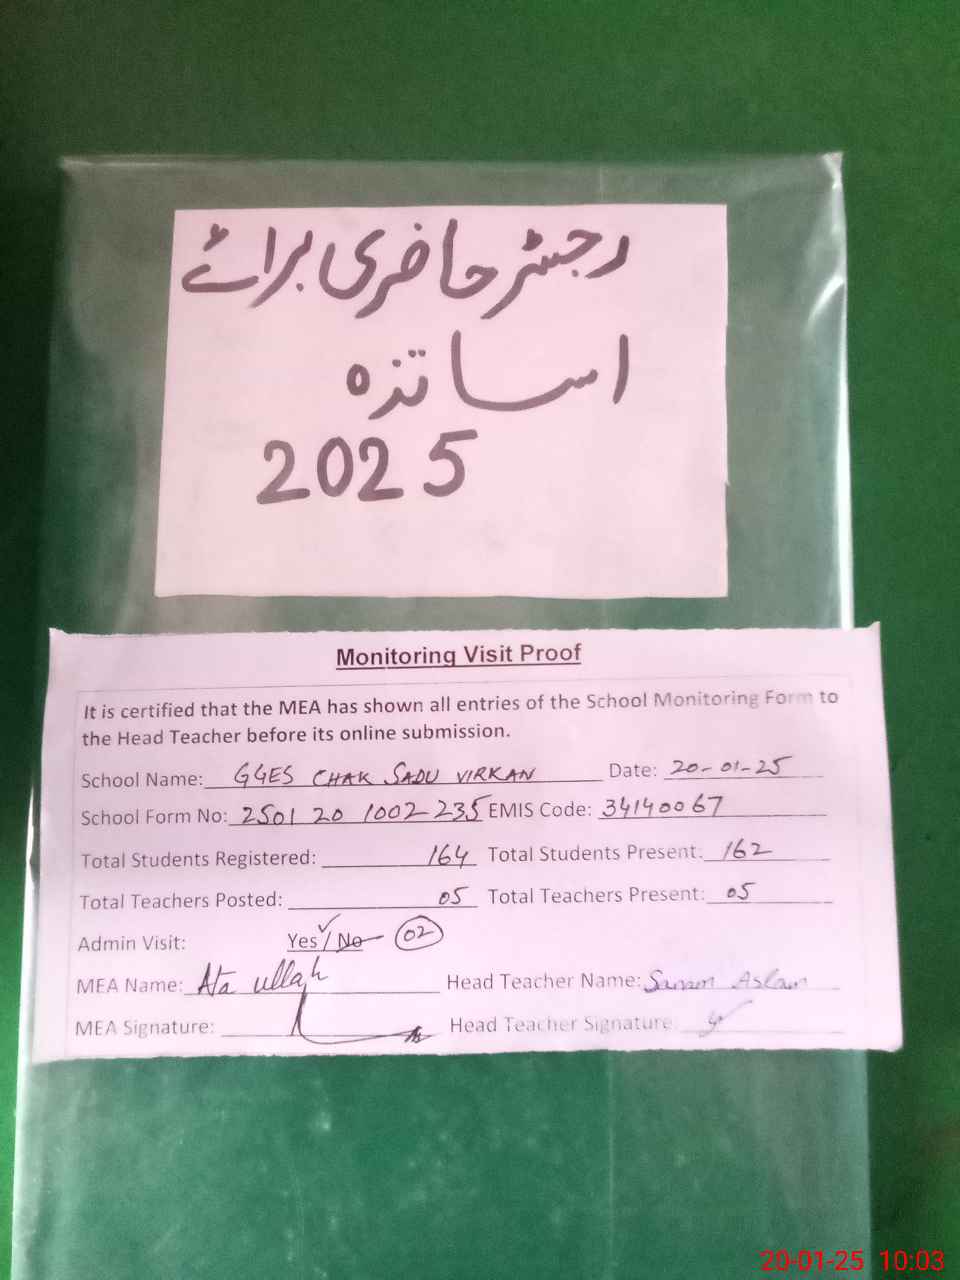 رجسٹر حاضری برائے
اساتذہ
2025
Monitoring Visit Proof
It is certified that the MEA has shown all entries of the School Monitoring Form to
the Head Teacher before its online submission.
School Name: GGES CHAK SADU VIRKAN Date: 20-01-25
School Form No: 2501 20 1002-235 EMIS Code: 34140067
Total Students Registered: 164 Total Students Present: 162
Total Teachers Posted: 05 Total Teachers Present: 05
Admin Visit: Yes / No 02
MEA Name: Ata ullah Head Teacher Name: Sanam Aslam
MEA Signature: Head Teacher Signature:
20-01-25 10:03